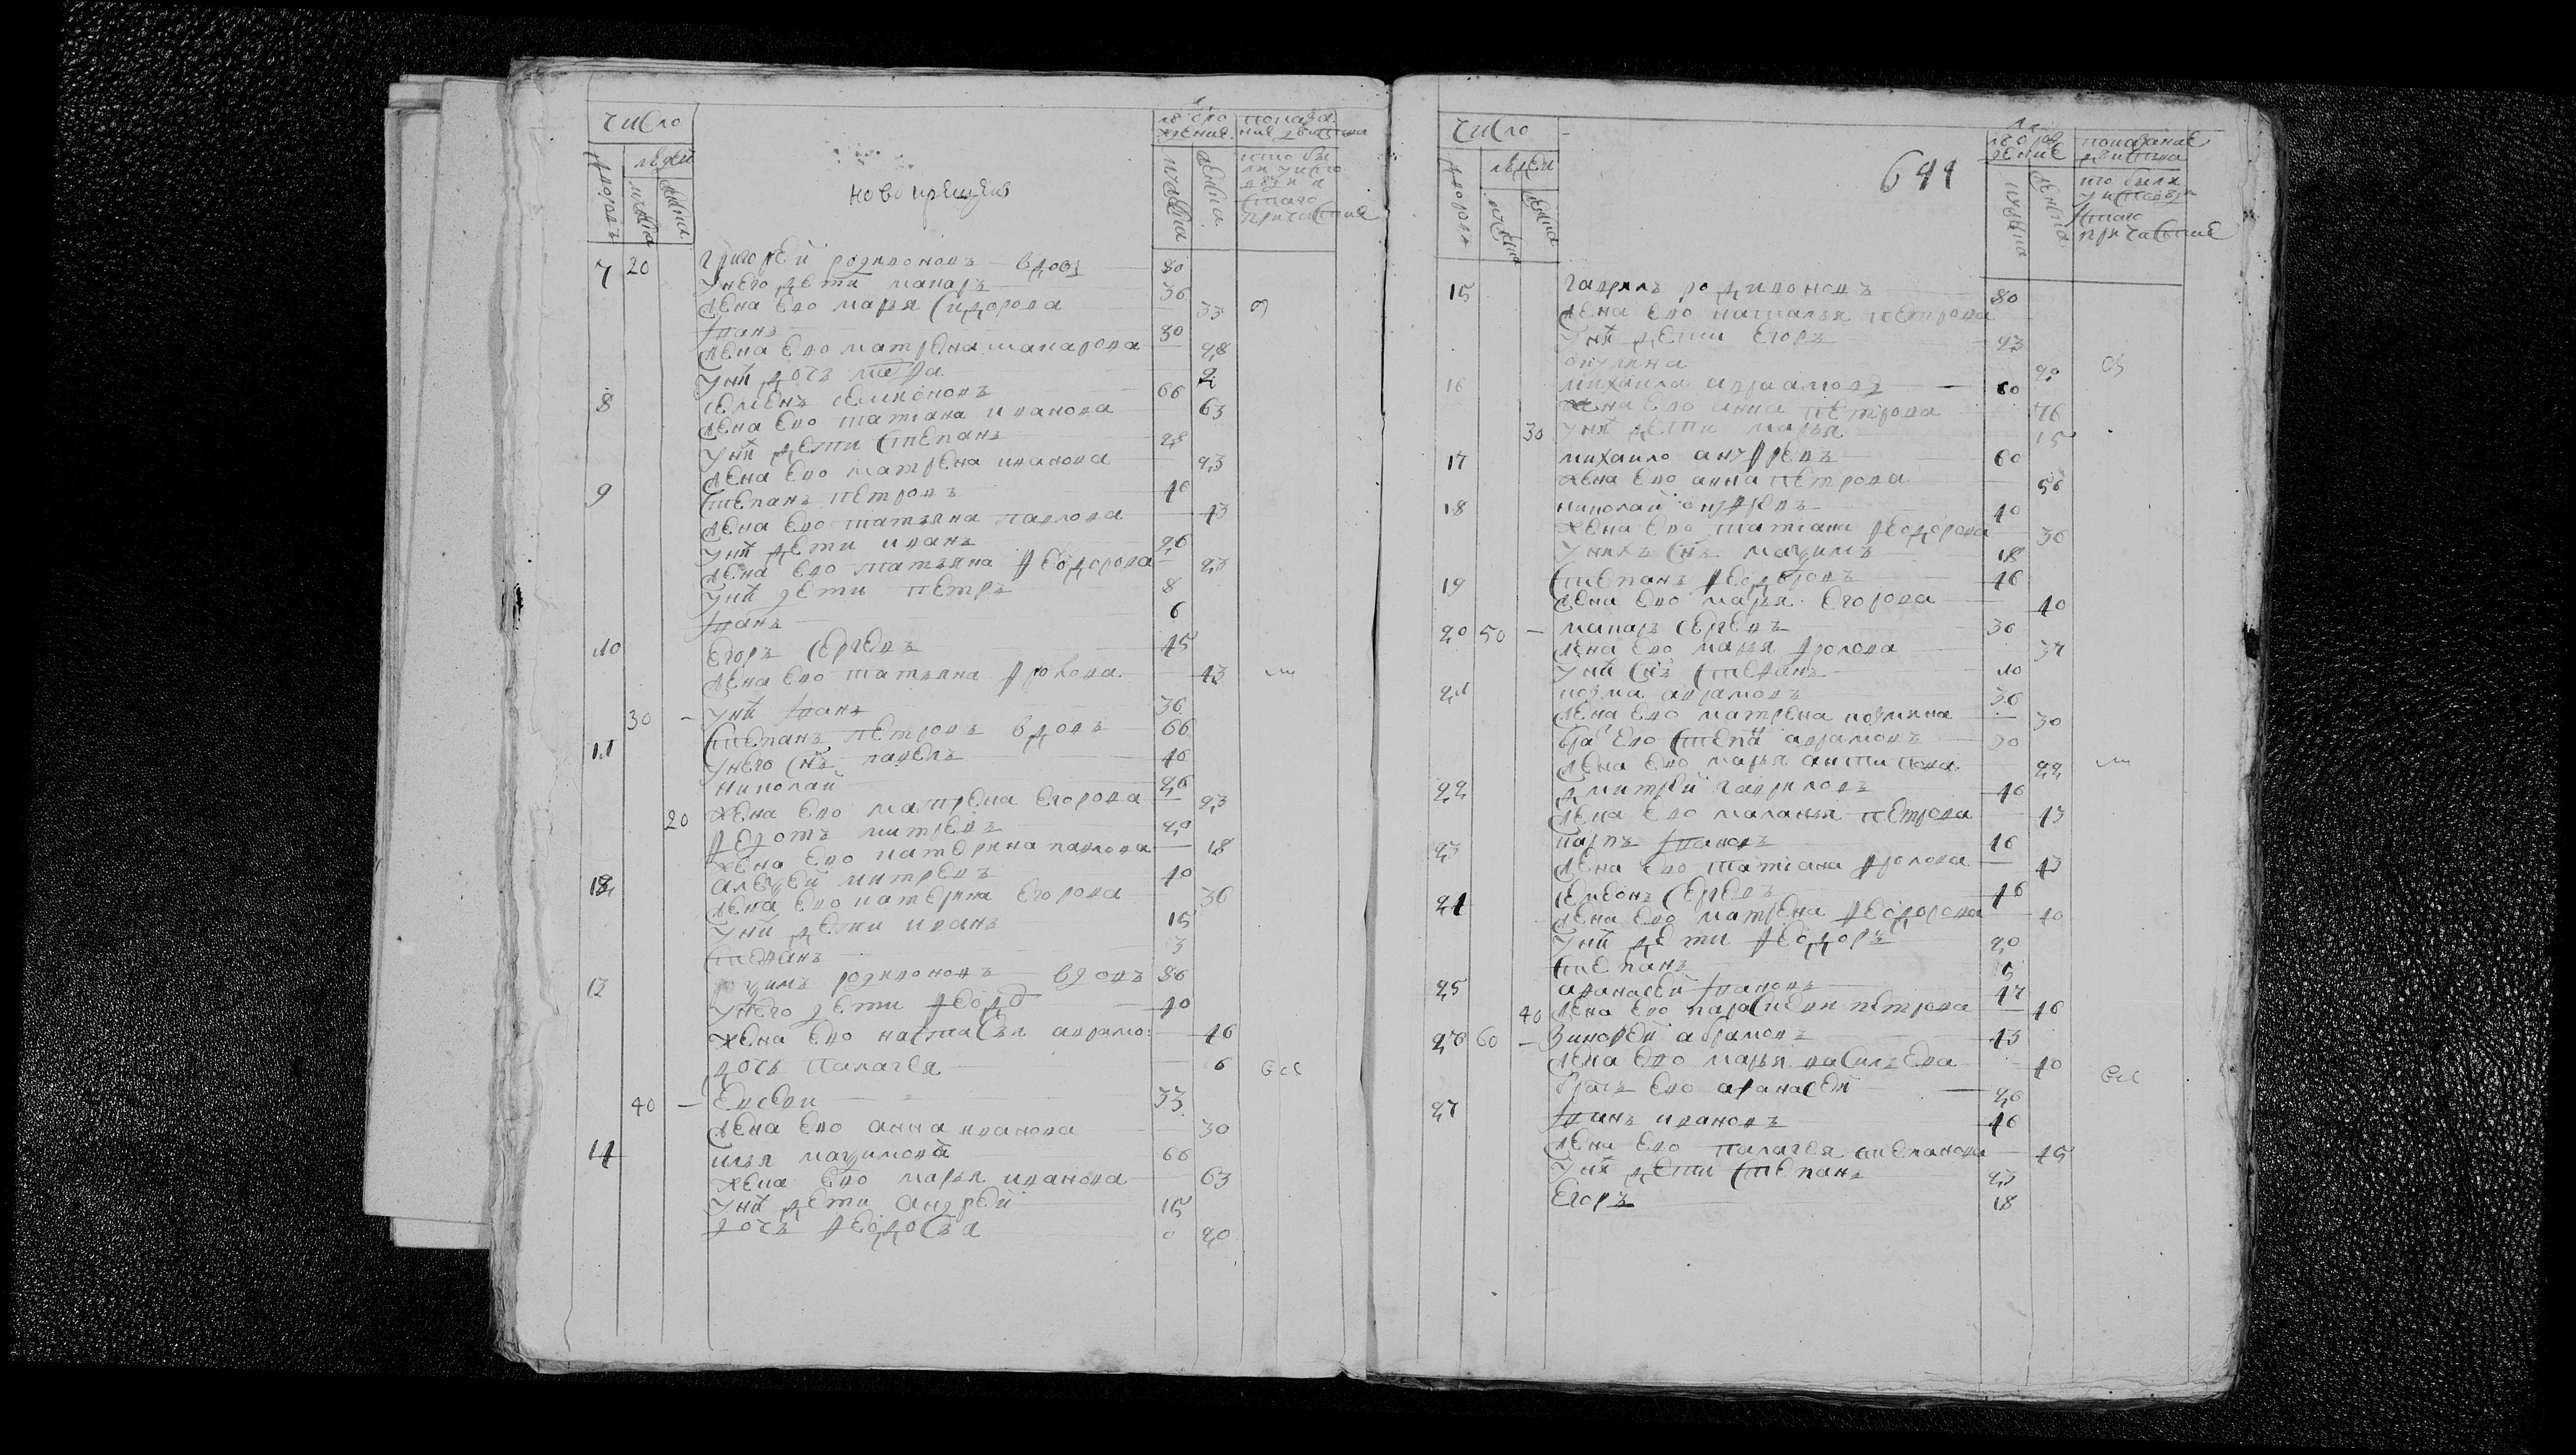 число
дворовъ
людей
мужска
женска
новокрещены
мужска
женска
7 20 григорей родионовъ вдовъ 80
у него дети макаръ 36
жена ево марья сидорова 33
иванъ 30
жена ево матрена макарова 28
у них дочь 2
8 семенъ семионовъ 66
жена ево татиана иванова 63
у них дети степанъ 28
жена ево матрена иванова 23
9 степанъ петровъ 46
жена ево татьяна павлова 43
у них дети иванъ 26
жена ево татьяна феодорова 23
у них дети петръ 8
иванъ 6
10 егоръ сергевъ 45
жена ево татьяна фролова 43
30 у них иванъ 36
11 степанъ петровъ вдовъ 66
у него снъ павелъ 40
николай 26
20 жена ево матрена егорова 23
федотъ митревъ 20
жена ево катерина павлова 18
12 алексей митревъ 40
жена ево катерина егорова 36
у них дети иванъ 15
степанъ 3
13 родионовъ вдовъ 86
у него дети феодо 40
жена ево настасья аврамо: 46
дочь палагея 6
40 евсеви 33
жена ево анна иванова 30
14 илья максимова 66
жена ево марья иванова 63
у них дети андрей 15
дочь феодосья 20
число
дворовъ
людей
мужска
женска
641
показание
мужска
женска
15 гаврилъ родионовъ 80
жена ево наталья петрова
у них дети егоръ 23
окулина 20
16 михаила аврамовъ 60
жена ево анна петрова
30 у них дети марья 15
17 михаило ануфревъ 60
жена ево анна петрова 56
18 николай онуфревъ 40
жена ево татиана феодорова 36
у нихъ снъ максимъ 18
19 степанъ феодоровъ 46
жена ево марья егорова 40
20 50 макаръ сергевъ 36
жена ево марья фролова 34
у них снъ степанъ 10
21 козма аврамовъ 36
жена ево матрена козмина 30
бра ево степа аврамовъ 30
жена ево марья антипова 22
22 дмитрей гавриловъ 46
жена ево маланья петрова 43
23 карпъ ивановъ 46
жена ево татиана фролова 43
24 семионъ сергевъ 46
жена ево матрена феодорова 40
у них дети феодоръ 20
степанъ 5
25 афанасей ивановъ 47
40 жена ево параскеви петрова 46
26 60 зиновей абрамовъ 43
жена ево марья васильева 40
братъ ево афанасей 26
27 иванъ ивановъ 46
жена ево палагея степанова 45
у них дети степанъ 23
егоръ 18